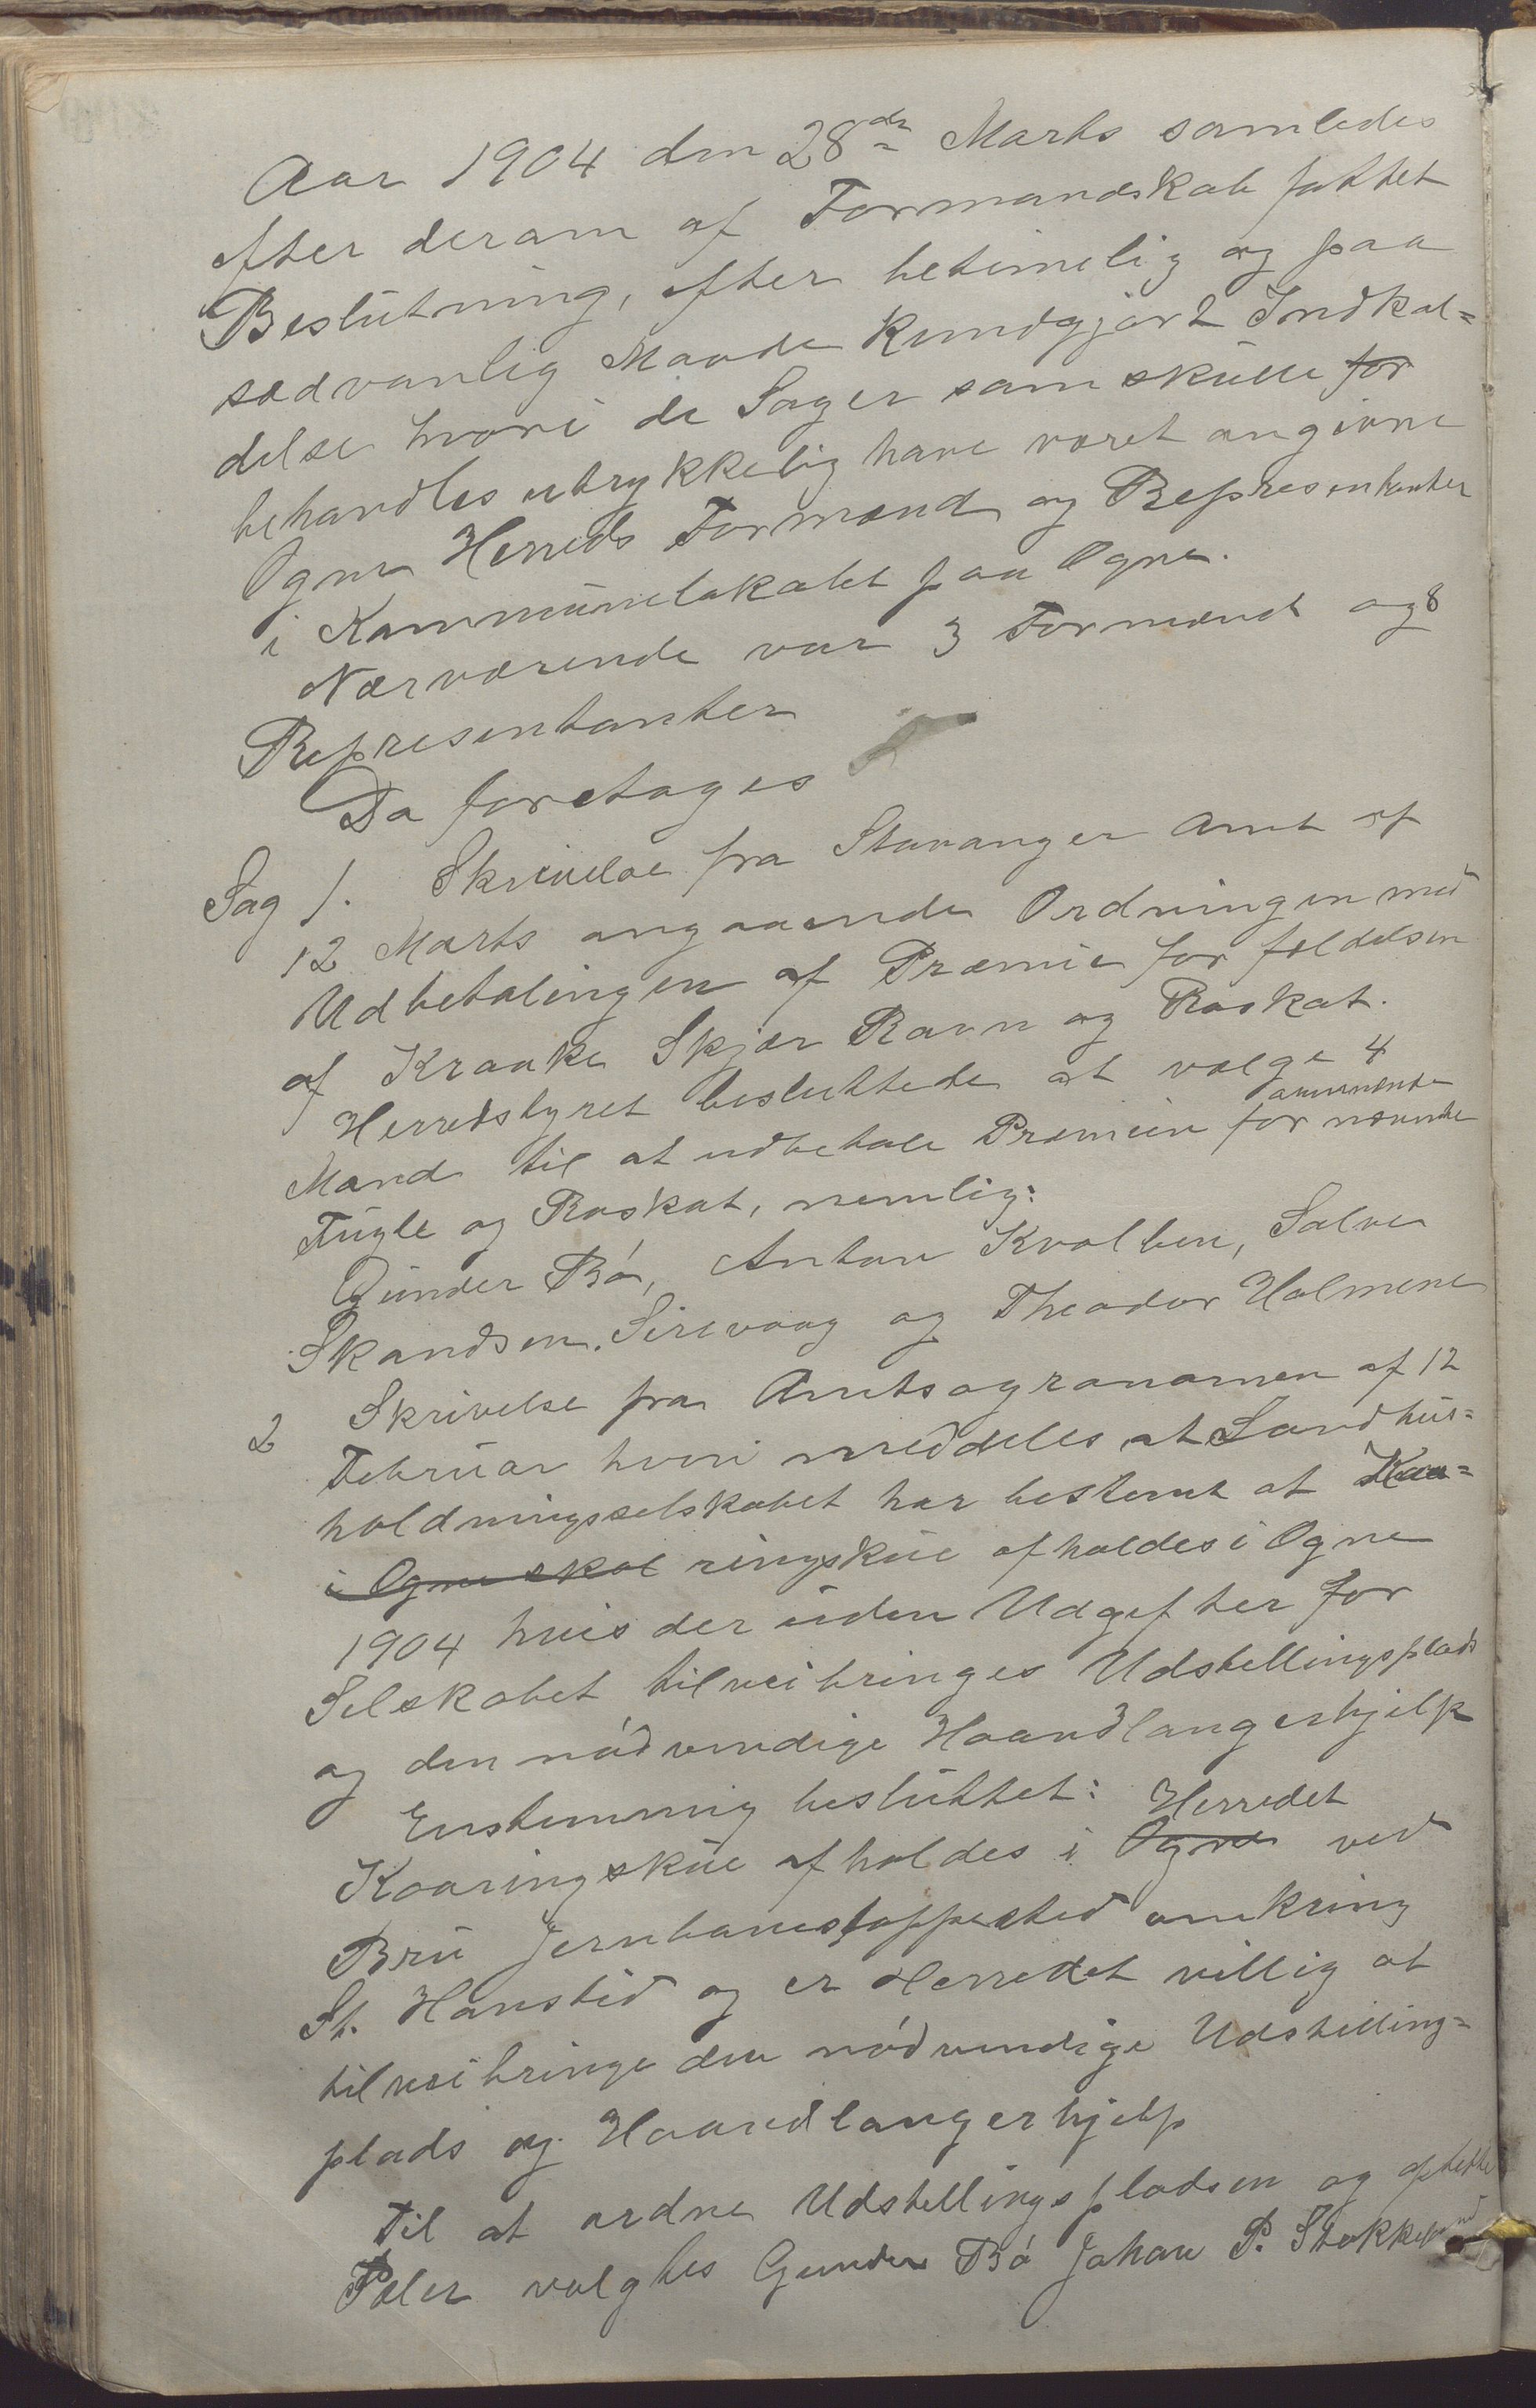 Aar 1904 den 28de Marts samledes
efter derom af Formandskab fattet
Beslutning, efter betimelig og paa
sædvanlig Maade Kundgjort Indkal=
delse hvori de Sager som skulle for
behandles utrykkelig have været angivne
Ogne Herreds Formænd og Represententanter
i Kommunelokalet paa Ogne.
Nærværende var 3 Formænd og 8
Representanter
Da foretages
Sag 1. Skrivelse fra Stavanger Amt af
12 Marts angaaende Ordningen med
Udbetalingen af Præmie for fældelsen
af Kraake Skjør Ravn og Roskat.
Herredstyret besluttede at vælge 4
Mænd til at udbetale Præmien for nævnte
Fugle og Røskat, nemlig:
Gunder Bø, Anton Kvalben, Salve
Skandsen, Sirevaag og Theodor Holmene
2 Skrivelse fra Amtsagronomen af 12
Februar hvori meddeles at Landhus=
holdningsselskabet har bestemt at Kaa=
i Ogne skal ringskue afholdes i Ogne
1904 hvis der uden Udgifter for
Selskabet tilveibringes Udstellingsplads
og den nødvendige Haandlangerhjelp
Enstemmig besluttet: Herredet
Kaaringskue afholdes i Ogne ved
Bru Jernbanestoppested omkring
St. Hanstid og er Herredet villig at
tilveibringe den nødvendige Udstilling=
plads og Haandlangerhjelp
Til at ordne Udstellingspladsen og opsette
Pæler valgtes Gunder Bø Johan P. Stokkeland